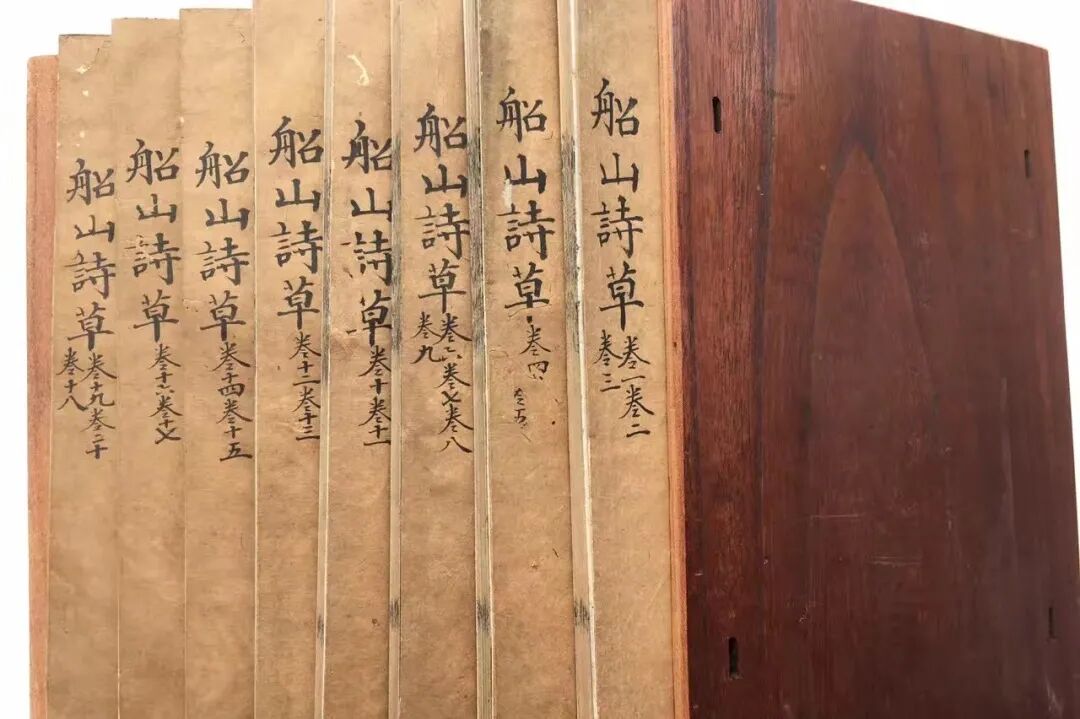 船山詩草
卷一卷二
卷三
船山詩草
卷四
卷五
船山詩草
卷六卷七卷八
卷九
船山詩草
卷十卷十一
船山詩草
卷十二卷十三
船山詩草
卷十四卷十五
船山詩草
卷十六卷十七
船山詩草
卷十九卷二十
卷十八